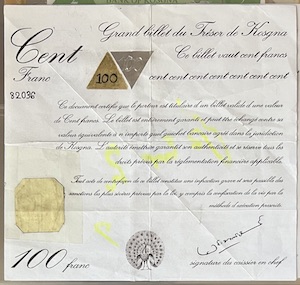 BANK OF KOSZNA
Cent
Franc
Grand billet du Trésor de Koszna
Ce billet vaut cent francs
cent cent cent cent cent cent cent
100
82036
Ce document certifie que le porteur est titulaire d'un billet valide d'une valeur
de Cent francs. Le billet est entièrement garanti et peut être échangé contre sa
valeur équivalente à n'importe quel guichet bancaire agréé dans la juridiction
de Koszna. L'autorité émettrice garantit son authenticité et se réserve tous les
droits prévus par la réglementation financière applicable.
Tout acte de contrefaçon de ce billet constitue une infraction grave et sera passible des
sanctions les plus sévères prévues par la loi, y compris la confiscation de la vie par la
méthode d'exécution prescrite.
100 franc
signature du caissier en chef